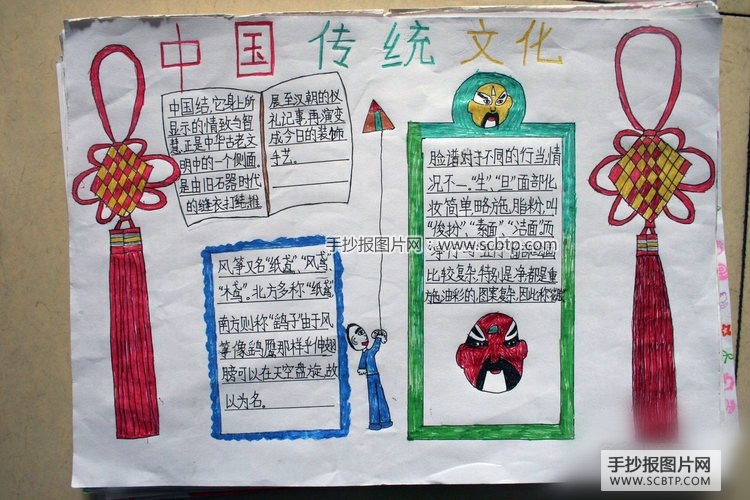 中国传统文化
中国结,它身上所
显示的情致与智
慧正是中华古老文
明中的一个侧面.
是由旧石器时代
的缝衣打结,推
展至汉朝的仪
礼记事,再演变
成今日的装饰
手艺。
风筝又名"纸鸢"、"风鸢"、
"木鸢"。北方多称"纸鸢"
南方则称"鹞子"由于风
筝像鹞鹰那样手伸翅
膀可以在天空盘旋,故
以为名。
脸谱对于不同的行当,情
况不一."生"、"旦"面部化
妆简单,略施脂粉,叫
"俊扮"、"素面"、"洁面".而
比较复杂,特别是净都是重
施油彩的,图案复杂,因此称
手抄报图片网:www.scbtp.com
手抄报图片网
WWW.SCBTP.COM